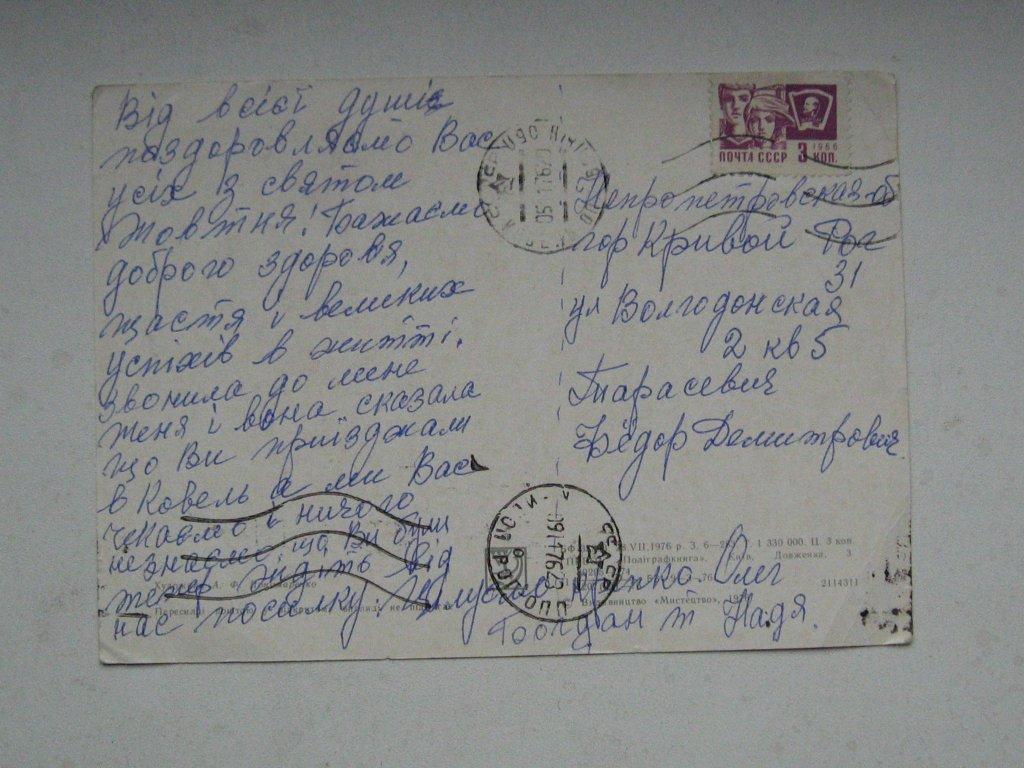 Від всієї душі
поздоровляємо Вас
усіх з святом
Жовтня! Бажаємо
доброго здоровя,
щастя і великих
успіхів в житті.
Звонила до мене
женя і вона сказала
що Ви приїзджали
в Ковель а ми Вас
чекаємо і нічого
незнаємо, що Ви були
ждіть Від
нас посилку. Цілуємо Олег
Богдан т Надя.
ПОЧТА СССР 3 КОП.
1966
Непропетровская об
гор Кривой Рог
31
ул Волгодонская
2 кв 5
Тарасевич
Фёдор Демитрович
VII.1976 р. З. 6— 1 330 000. Ц. 3 коп.
«Поліграфкнига». Київ, Довженка, 3.
2114311
Видавництво «Мистецтво», 19